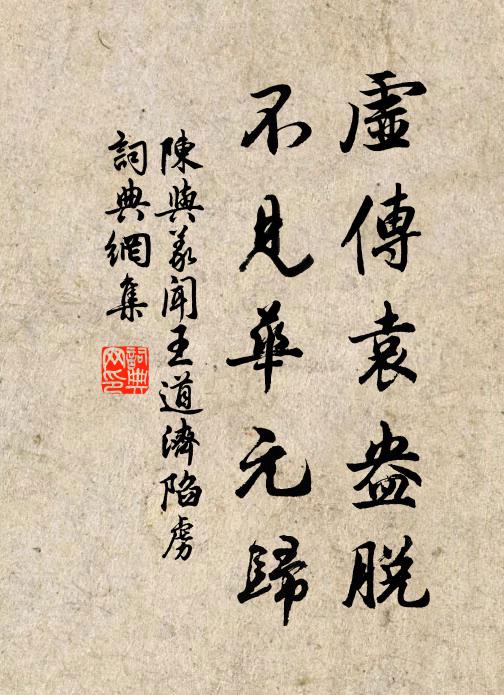 虛傳袁盎脫
不見華元歸
陳與義聞王道濟陷虜
詞典網集
詞典
网印